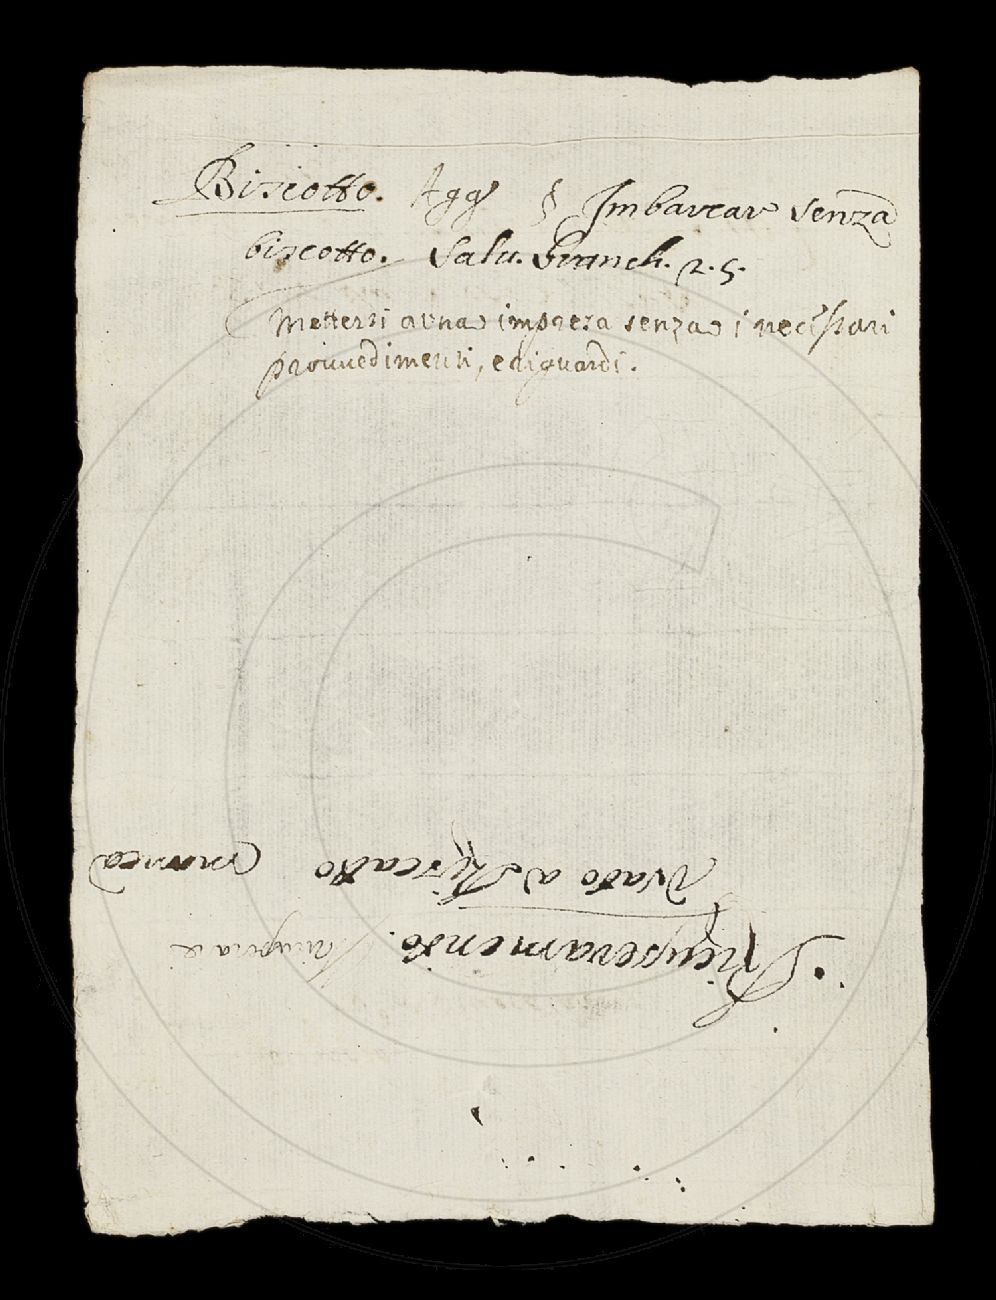 Biscotto. Agg. § Imbarcar senza
biscotto. Salu. Granch. 2. 5.
Mettersi a una impresa senza i necessari
provvedimenti, e riguardi.
Ricuperamento.
manca